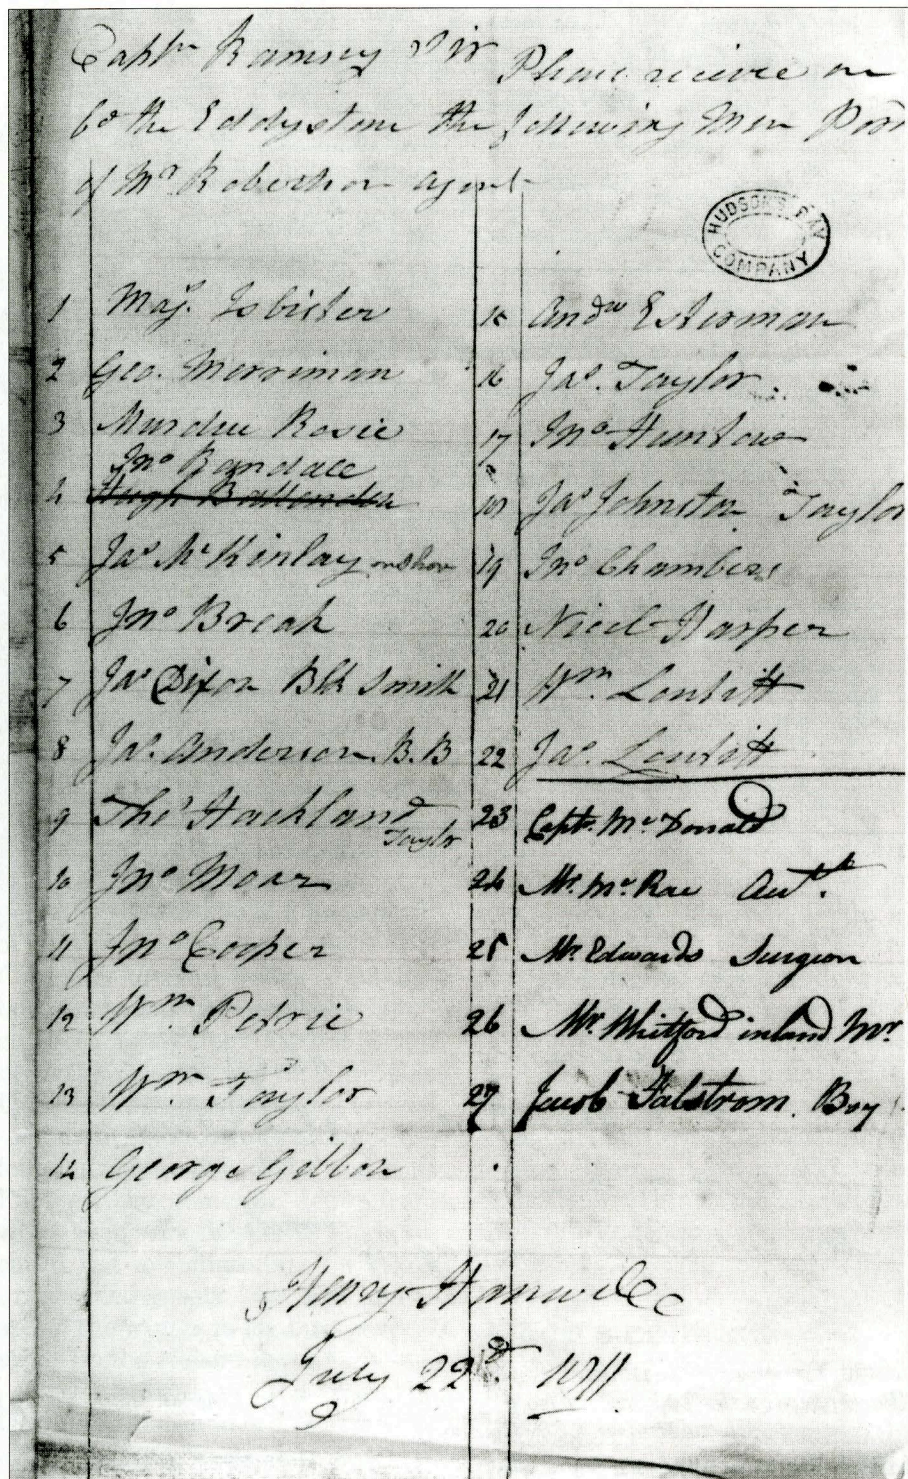 Captn Ramsey Sir Please receive on
bd the Eddystone the following Men Pord
of Mr Robertson agent
HUDSON'S BAY COMPANY
1 Mag. Isbister
2 Geo. Merriman
3 Murdu Rosie
Jno Randall
4 Hugh Ballenden
5 Jas McKinlay on shore
6 Jno Break
7 Jas Dixon Blk Smith
8 Jas. Anderson. B.B
9 Thos Hackland
Taylor
10 Jno Moar
11 Jno Cooper
12 Wm. Petrie
13 Wm. Taylor
14 George Gibbon
15 Andw Esterman
16 Jas. Taylor.
17 Jno Huntow
18 Jas Johnston Taylor
19 Jno Chambers
20 Nicol Harper
21 Wm. Loutitt
22 Jas. Loutitt
23 Captn. Mc Donald
24 Mr. Mc Rae
25 Mr. Edwards Surgeon
26 Mr. Whitford inland Mr.
27 Jacob Falstrom. Boy
Henry Hanwell
July 22d. 1811